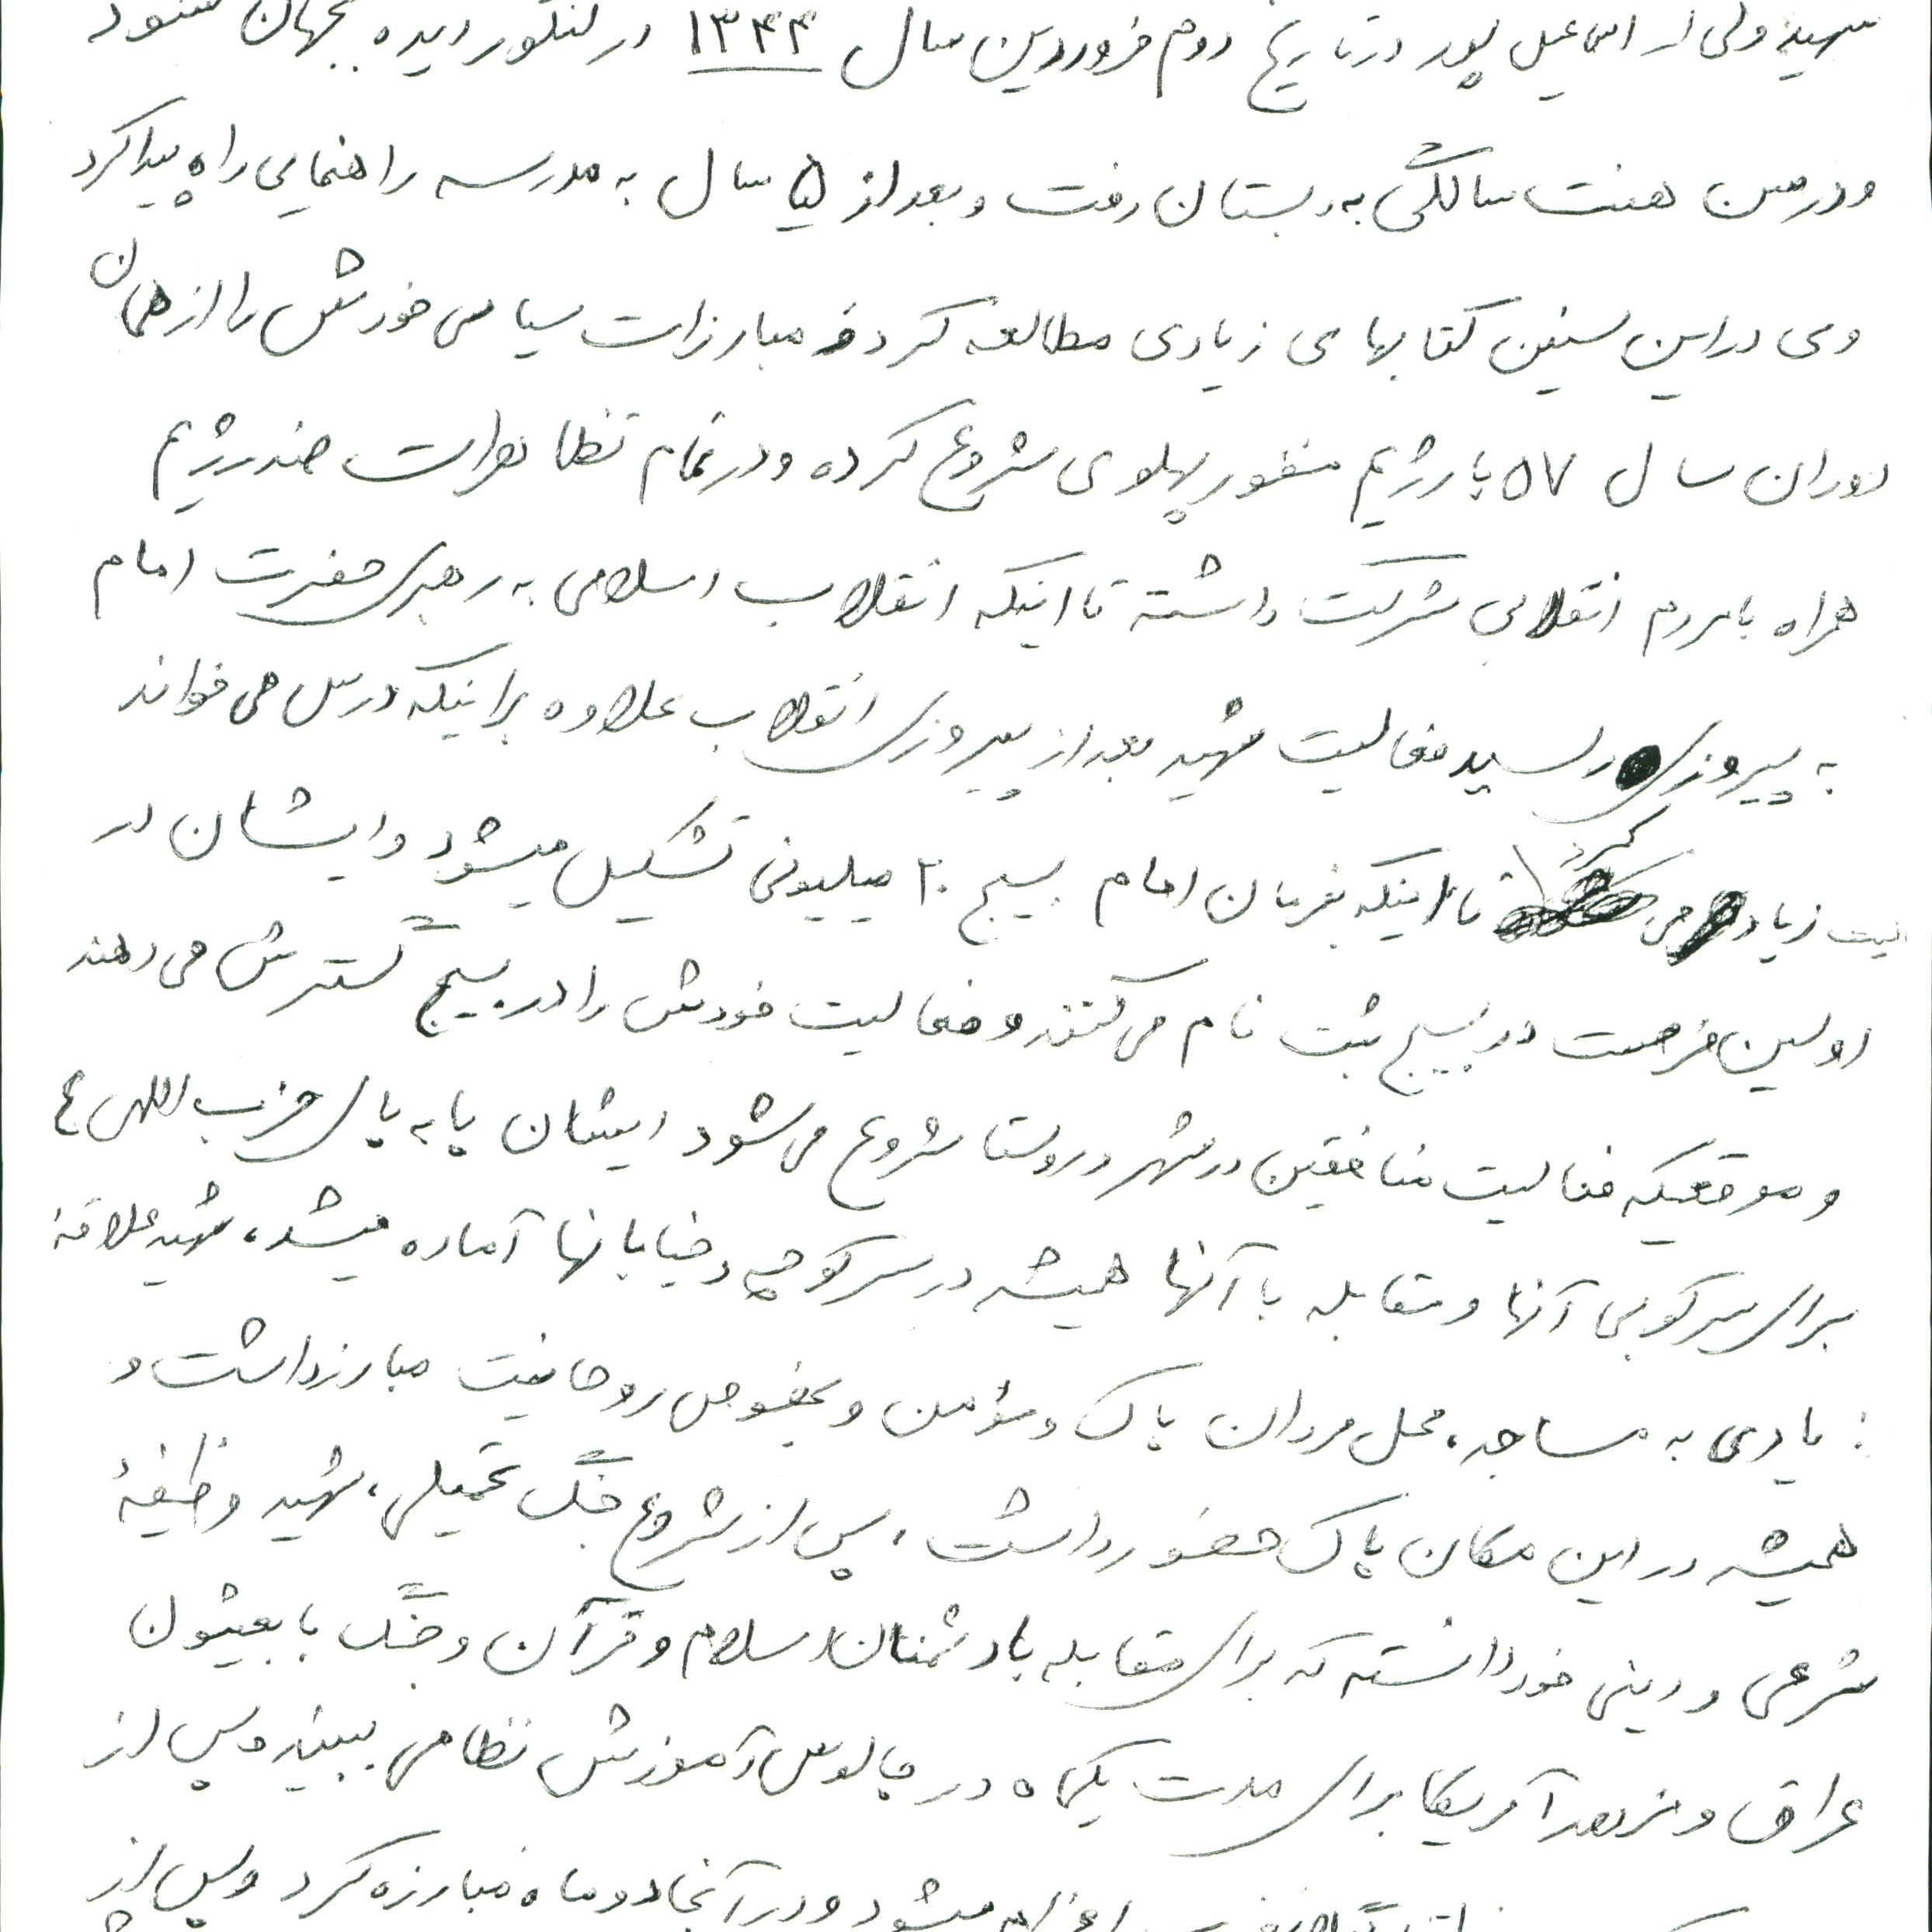 شهید ولی ا... اسماعیل پور در تاریخ دوم فروردین سال ۱۳۴۴ در لنگرود دیده بجهان گشود
و در سن هفت سالگی به دبستان رفت و بعد از ۵ سال به مدرسه راهنمایی راه پیدا کرد
وی در این سنین کتابهای زیادی مطالعه کرده و مبارزات سیاسی خودش را از همان
دوران سال ۵۷ با رژیم منفور پهلوی شروع کرده و در تمام تظاهرات ضد رژیم
همراه با مردم انقلابی شرکت داشته تا اینکه انقلاب اسلامی به رهبری حضرت امام
به پیروزی رسید فعالیت شهید بعد از پیروزی انقلاب علاوه بر اینکه درس می خواند
زیاد می کرد تا اینکه بفرمان امام بسیج ۲۰ میلیونی تشکیل میشود و ایشان در
اولین فرصت در بسیج ثبت نام می کنند و فعالیت خودش را در بسیج گسترش می دهند
و موقعیکه فعالیت منافقین در شهر و روستا شروع می شود ایشان پا به پای حزب اللهی ها
برای سرکوبی آنها و مقابله با آنها همیشه در سر کوچه و خیابانها آماده میشد، شهید علاقهٔ
زیادی به مساجد، محل مردان پاک و مؤمن و بخصوص روحانیت مبارز داشت و
همیشه در این مکان پاک حضور داشت، پس از شروع جنگ تحمیلی، شهید وظیفهٔ
شرعی و دینی خود دانسته که برای مقابله با دشمنان اسلام و قرآن و جنگ با بعثیون
عراق و مزدور آمریکا برای مدت یکماه در چالوس آموزش نظامی ببیند و پس از
میشود و در آنجا دو ماه مبارزه کرد و پس از